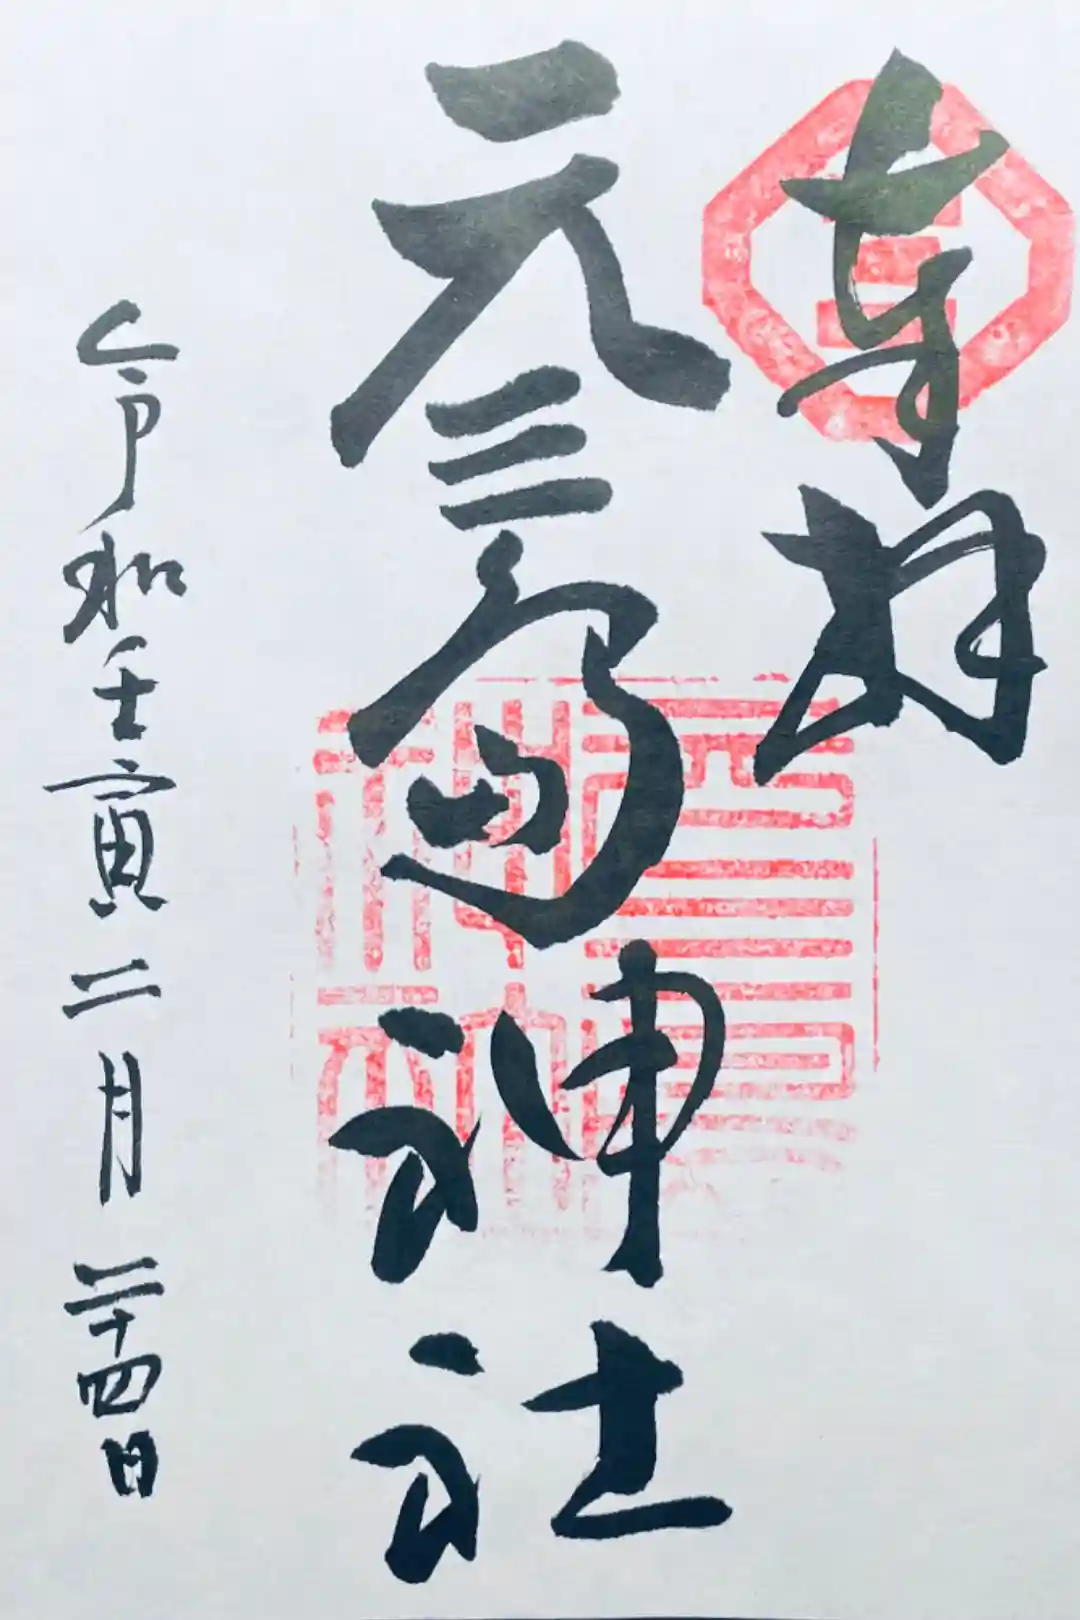 奉拝
元三島神社
令和壬寅二月二十四日